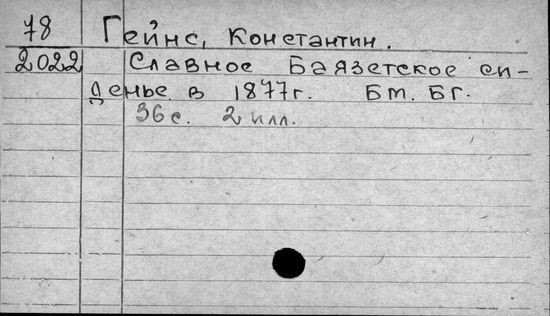 78 Гейнс, Константин.
2022 Славное Баязетское си-
денье в 1877г. Бм. Бг.
36 с. 2 илл.